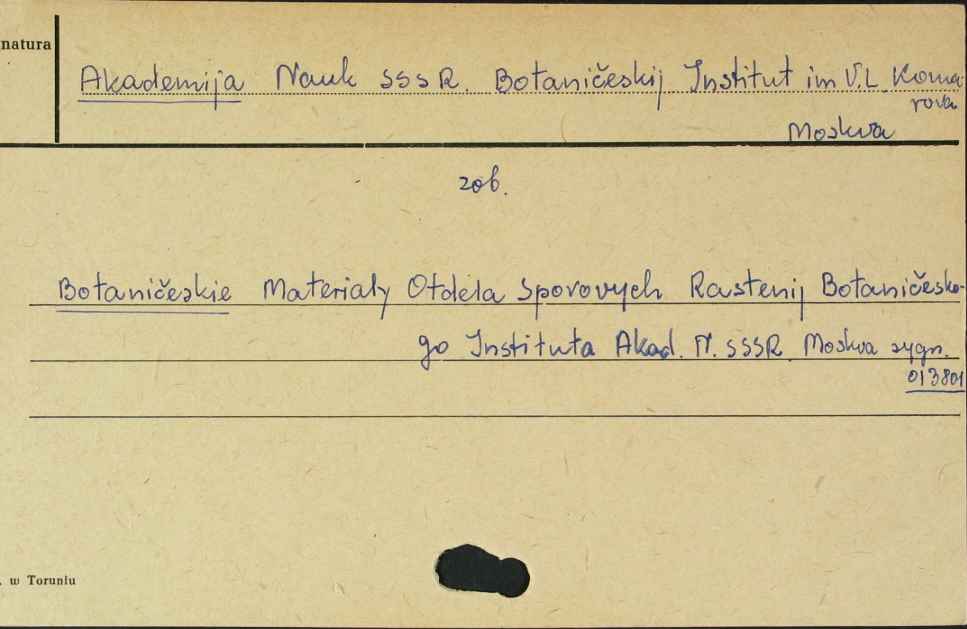 natura
Akademija Nauk SSSR. Botaničeskij Institut im V.L. Koma-
rova
Moskva
zob.
Botaničeskie Materialy Otdela Sporovych Rastenij Botaničesko-
go Instituta Akad. N. SSSR Moskva sygn.
013801
. w Toruniu